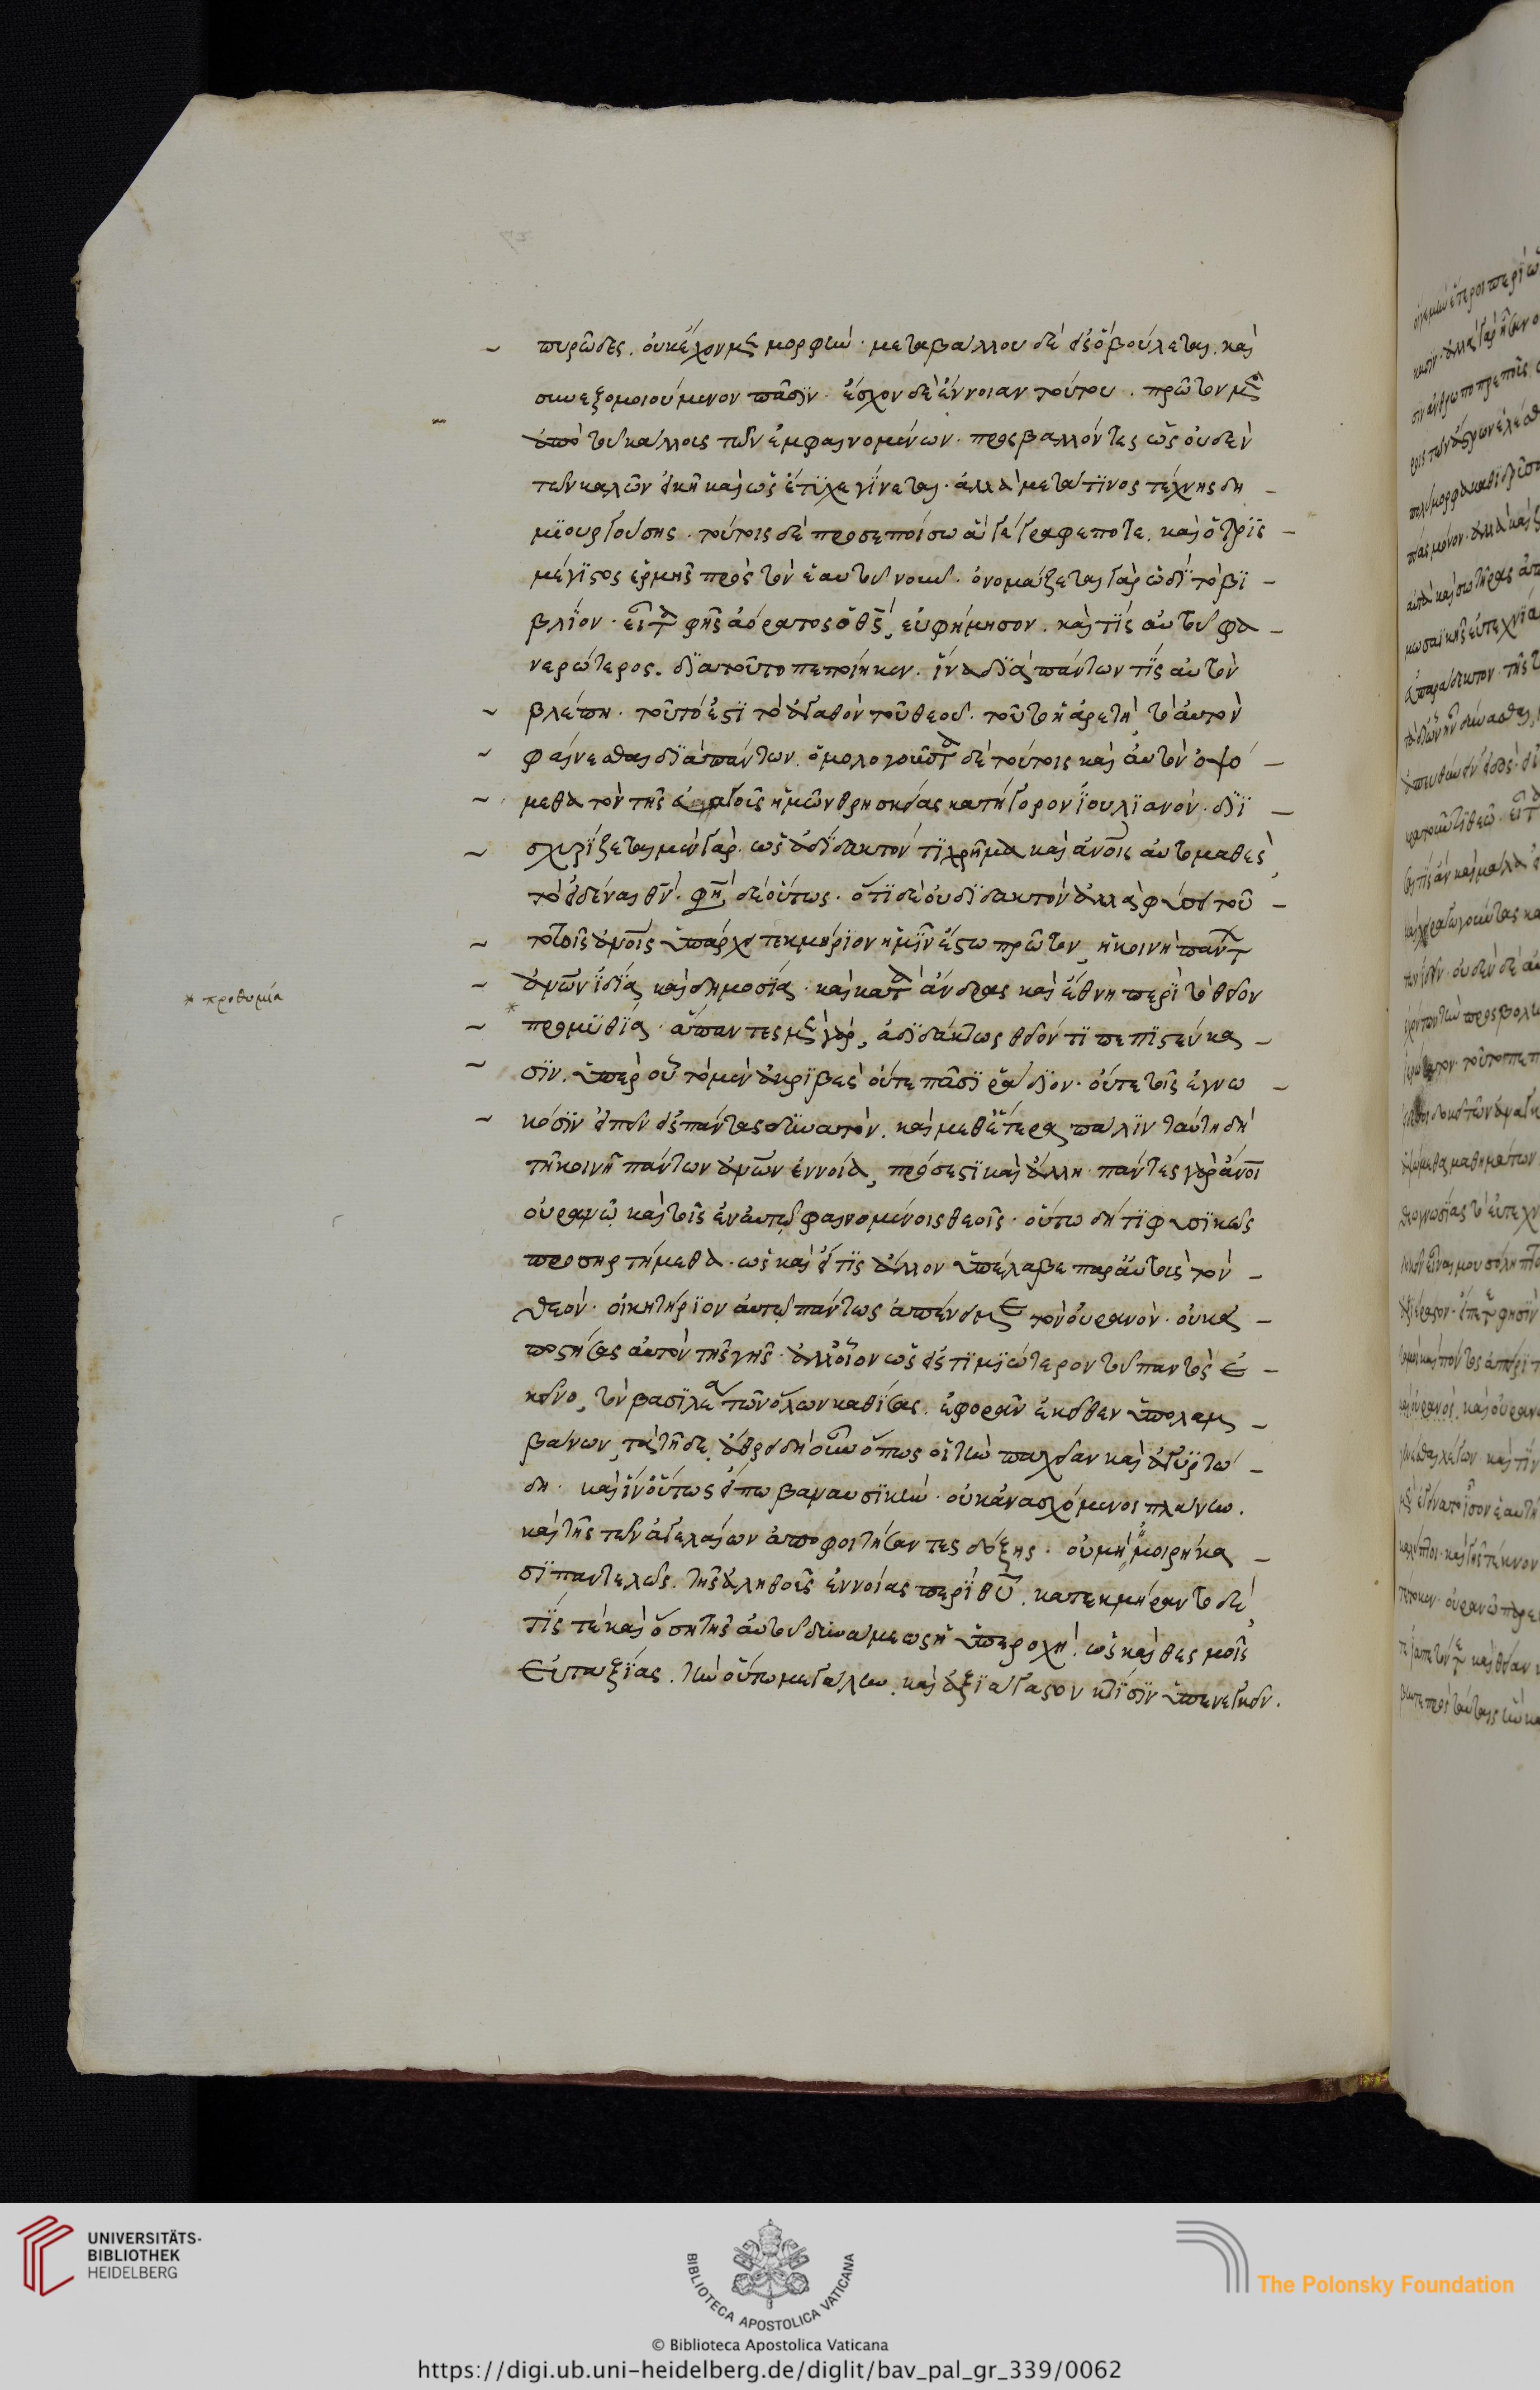 πυρῶδες. οὐκ ἔχον μὲν μορφὴν. μεταβάλλον δὲ εἰς ὃ βούλεται. καὶ
συνεξομοιούμενον πᾶσιν. ἔσχον δὲ ἔννοιαν τούτου. πρῶτον μὲν
ἀπὸ τοῦ κάλλους τῶν ἐμφαινομένων. προσβάλλοντες ὡς οὐδὲν
τῶν καλῶν εἰκῆ καὶ ὡς ἔτυχε γίνεται. ἀλλὰ μετά τινος τέχνης δη
μιουργούσης. τούτοις δὲ προσεποίσω ἃ γέγραφε ποτε. καὶ ὁ τρὶς
μέγιστος ἑρμῆς πρὸς τὸν ἑαυτοῦ νοῦν. ὀνομάζεται γὰρ ὡδὶ τὸ βι
βλίον. εἶτα φῆς ἀόρατος ὁ θς, εὐφήμησον. καὶ τίς αὐτοῦ φα
νερώτερος. διατοῦτο πεποίηκεν. ἵνα διὰ πάντων τίς αὐτὸν
βλέπη. τοῦτό ἐστι τὸ ἀγαθὸν τοῦ θεοῦ. τοῦτο ἡ ἀρετὴ, τὸ αὐτὸν
φαίνεσθαι διὰ πάντων. ὁμολογοῦντα δὲ τούτοις καὶ αὐτὸν ὀψό
μεθα τὸν τῆς εὐαγοῦς ἡμῶν θρησκείας κατήγορον ἰουλιανόν. διϊ
σχυρίζεται μὲν γὰρ. ὡς ἀδίδακτόν τι χρῆμα καὶ ἀνοις αὐτομαθὲς,
τὸ εἰδέναι θν. φησὶ δὲ οὕτως. ὅτι δὲ οὐ διδακτὸν ἀλλὰ φύσει τοῦ
το τοῖς ἀνοις ὑπάρχει τεκμήριον ἡμῖν ἔστω πρῶτον, ἡ κοινὴ πάντων
ἀνων ἰδία, καὶ δημοσία. καὶ κατὰ ἄνδρας καὶ ἔθνη περὶ τὸ θεῖον
προμυθία. ἅπαντες μὲν γὰρ, ἀδιδάκτως θεῖόν τι πεπιστεύκα
σιν. ὑπὲρ οὗ τὸ μὲν ἀκριβὲς οὔτε πᾶσι ῥάδιον. οὔτε τοῖς ἐγνω
κόσιν εἰπεῖν εἰς πάντας δυνατόν. καὶ μεθ' ἕτερα πάλιν ταύτη δὴ
τῆ κοινῆ πάντων ἀνων ἐννοία, πρόσεστι καὶ ἄλλη. πάντες γὰρ ἄνοι
οὐρανῶ καὶ τοῖς ἐν αὐτῶ φαινομένοις θεοῖς. οὕτω δή τι φυσικῶς
προσηρτήμεθα. ὡς καὶ εἴ τις ἄλλον ὑπέλαβε παρ' αὐτοὺς τὸν
θεόν. οἰκητήριον αὐτῶ πάντως ἀπένειμε τὸν οὐρανὸν. οὐκ ἀ
ποστήσας αὐτὸν τῆς γῆς. ἀλλ' οἷον ὡς εἰς τιμιώτερον τοῦ παντὸς ἐ
κεῖνο, τὸν βασιλέα τῶν ὅλων καθίσας. ἐφορᾶν ἐκεῖθεν ὑπολαμ
βάνων, τὰ τῆδε. ἄθρει δὴ οὖν ὅπως οἱ τὴν παχεῖαν καὶ ἀγυρτώ
δη. καὶ ἵν' οὕτως εἴπω βαναυσικὴν. οὐκ ἀνασχόμενοι πλάνην.
καὶ τῆς τῶν ἀγελαίων ἀποφοιτήσαντες δόξης. οὐ μὴν ἠμοιρήκα
σι παντελῶς. τῆς ἀληθοῦς ἐννοίας περὶ θυ. κατεκμήραντο δὲ,
τίς τὲ καὶ ὅση τῆς αὐτοῦ δυνάμεως ἡ ὑπεροχὴ. ὡς καὶ θεσμοῖς
εὐταξίας. τὴν οὕτω μεγάλην. καὶ ἀξιάγαστον κτίσιν ὑπενεγκεῖν.
* προθυμία
UNIVERSITÄTS-
BIBLIOTHEK
HEIDELBERG
BIBLIOTECA APOSTOLICA VATICANA
© Biblioteca Apostolica Vaticana
The Polonsky Foundation
https://digi.ub.uni-heidelberg.de/diglit/bav_pal_gr_339/0062